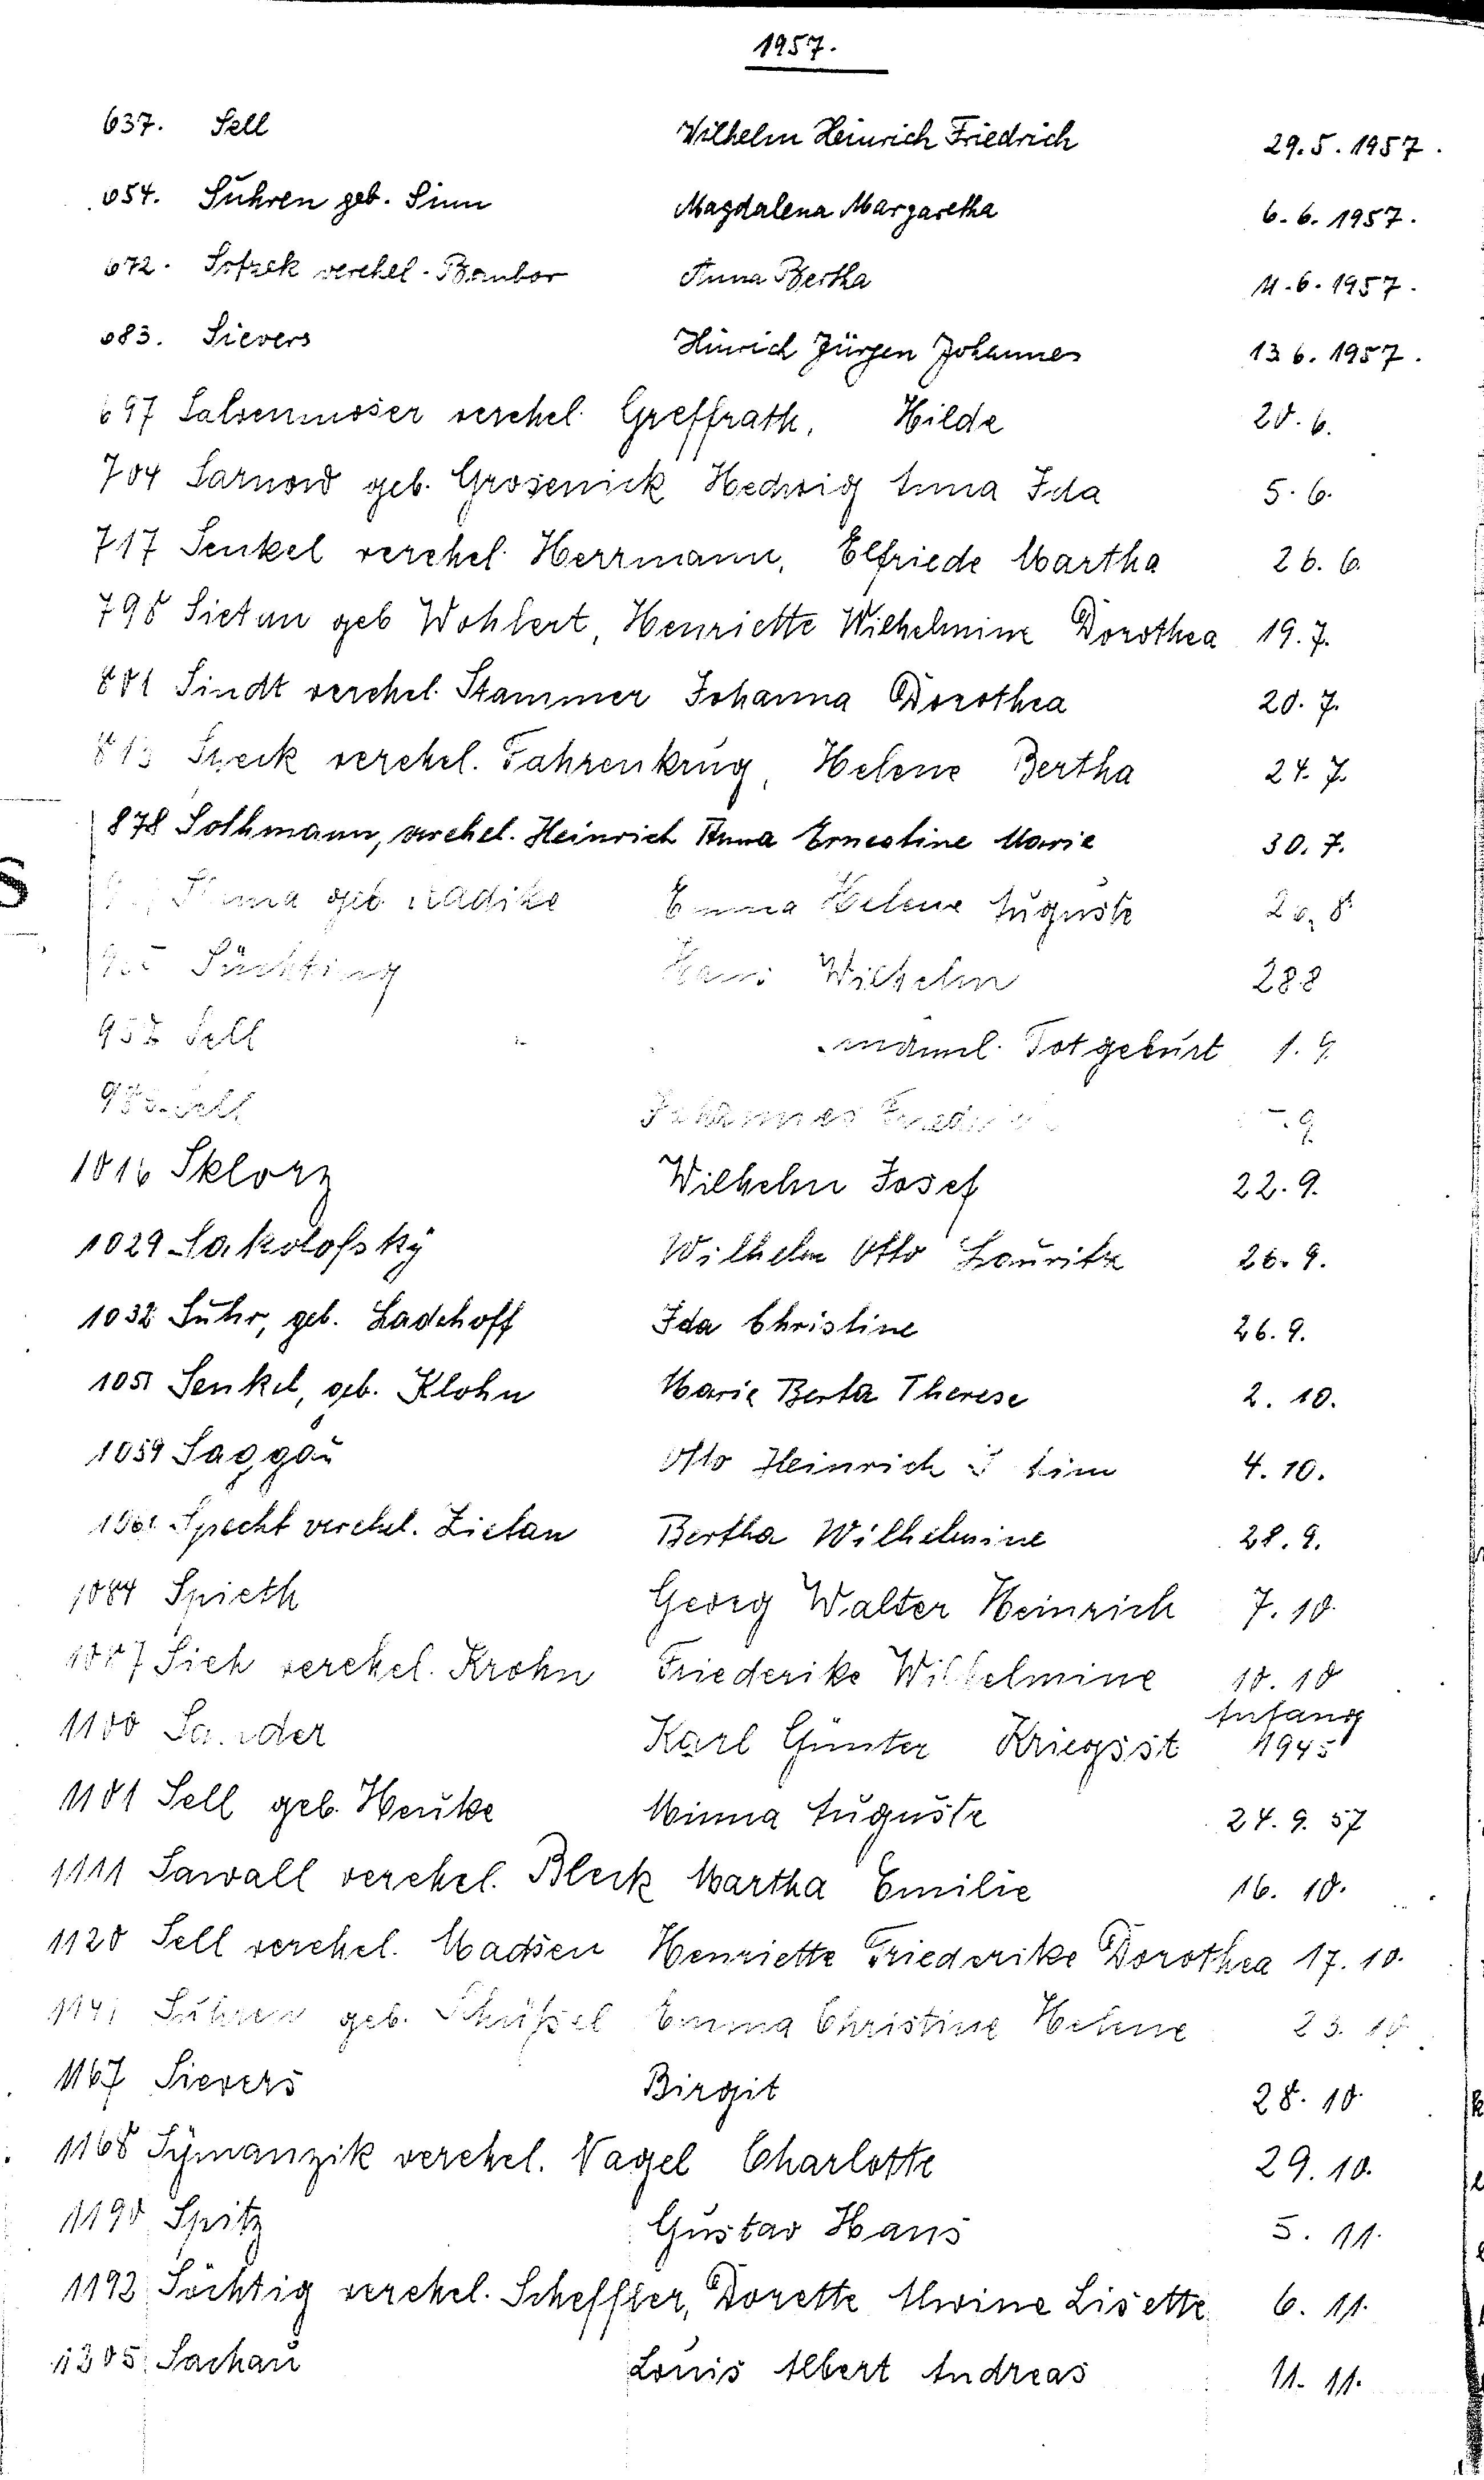 1957.
637. Sell Wilhelm Heinrich Friedrich 29.5.1957.
654. Suhren geb. Sinn Magdalena Margaretha 6.6.1957.
672. verehel. Anna Bertha 11.6.1957.
683. Sievers Hinrich Jürgen Johannes 13 6.1957.
697 Salvenmoser verehel. Greffrath, Hilde 20.6.
704 Sarnow geb. Grosenick Hedwig Anna Ida 5.6.
717 Senkel verehel. Herrmann, Elfriede Martha 26.6.
798 Sietan geb Wohlert, Henriette Wilhelmine Dorothea 19.7.
801 Sindt verehel. Stammer Johanna Dorothea 20.7.
813 Speck verehel. Fahrenkrug, Helene Bertha 24.7.
878 Sothmann, verehel. Heinrich Anna Ernestine Marie 30.7.
S
geb. Radike Emma Helene Auguste 8
Süchting Hans Wilhelm 28.8
957 Sell männl. Totgeburt 1.9.
Sell Johannes Friedrich 9
1016 Sklorz Wilhelm Josef 22.9.
1029 Sakolofsky Wilhelm Otto Lauritz 26.9.
1032 Suhr, geb. Ladehoff Ida Christine 26.9.
1051 Senkel, geb. Klohn Marie Berta Therese 2.10.
1059 Saggau Otto Heinrich 4.10.
Specht verehel. Zietan Bertha Wilhelmine 28.9.
1084 Spieth Georg Walter Heinrich 7.10.
1087 Sieh verehel. Krohn Friederike Wilhelmine 10.10
1100 Sander Karl Günter Kriegsst. Anfang 1945
1101 Sell geb. Heuke Minna Auguste 24.9.57
1111 Sawall verehel. Bleck Martha Emilie 16.10.
1120 Sell verehel. Madsen Henriette Friederike Dorothea 17.10.
Suhren geb. Schüßel Emma Christine Helene 23.10.
1167 Sievers Birgit 28.10.
1168 Symanzik verehel. Nagel Charlotte 29.10.
1190 Spitz Gustav Hans 5.11.
1192 Söchtig verehel. Scheffler, Dorette Alwine Lisette 6.11.
1205 Sachau Louis Albert Andreas 11.11.